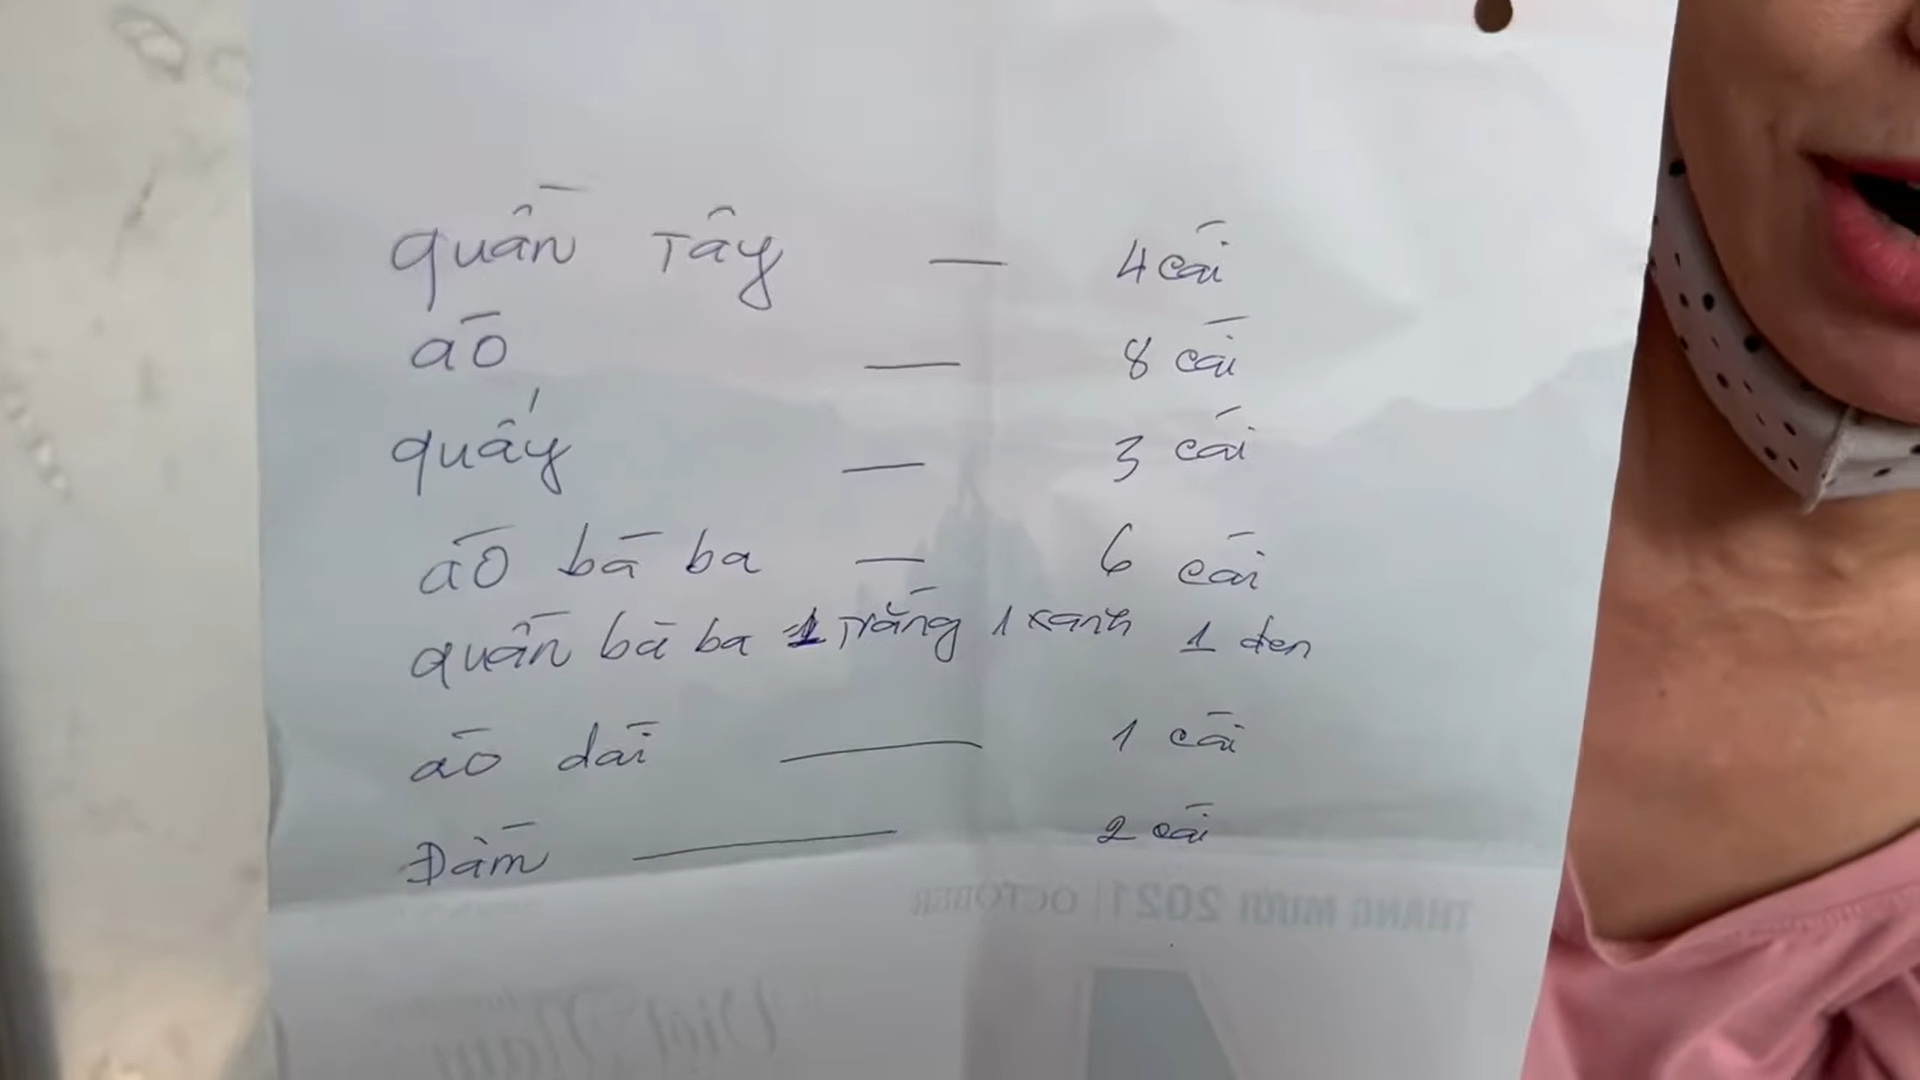 quần Tây — 4 cái
áo — 8 cái
quấy — 3 cái
áo bà ba — 6 cái
quần bà ba 1 trắng 1 xanh 1 đen
áo dài — 1 cái
Đầm — 2 cái
THÁNG MƯỜI 2021 | OCTOBER
Việt Nam